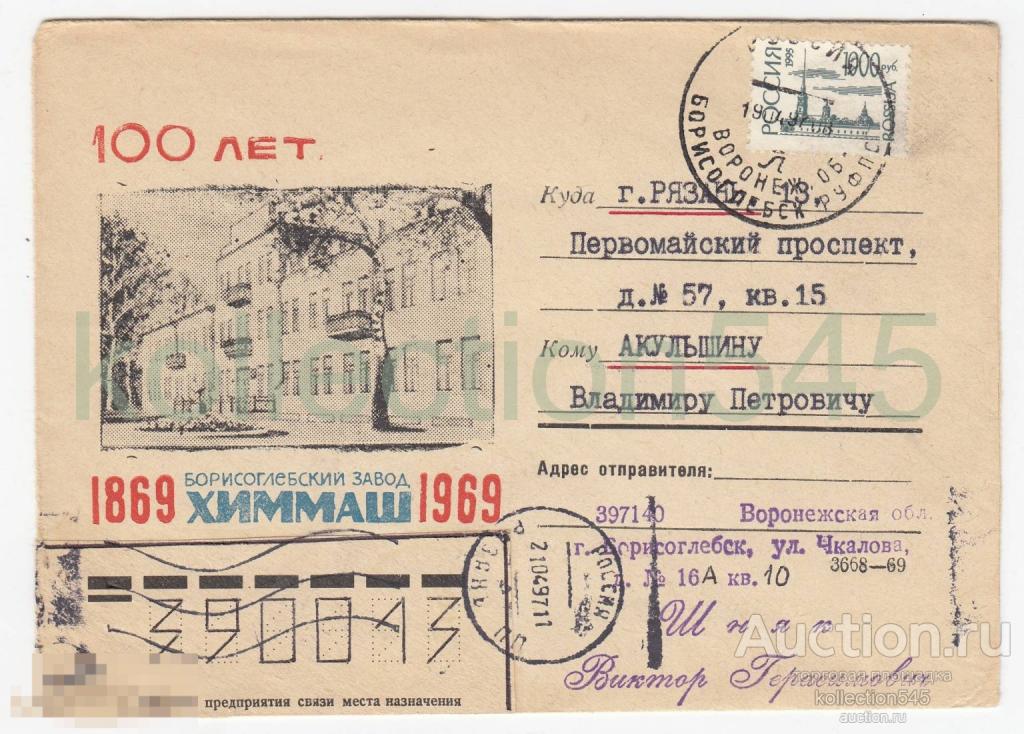 100 ЛЕТ.
1869 БОРИСОГЛЕБСКИЙ ЗАВОД ХИММАШ 1969
РОССИЯ 1995
1000 руб.
ROSSIJA
БОРИСОГЛЕБСК РУФПС
ВОРОНЕЖ. ОБЛ
Куда г. РЯЗАНЬ 13
Первомайский проспект,
д.№ 57, кв.15
Кому АКУЛЬШИНУ
Владимиру Петровичу
Адрес отправителя:
397140 Воронежская обл.
г. Борисоглебск, ул. Чкалова,
д. № 16А кв. 10
3668—69
Шняк
Виктор Герасимович
РОССИЯ
21049711
390013
предприятия связи места назначения
kollection545
Auction.ru
торговая площадка
kollection545
auction.ru